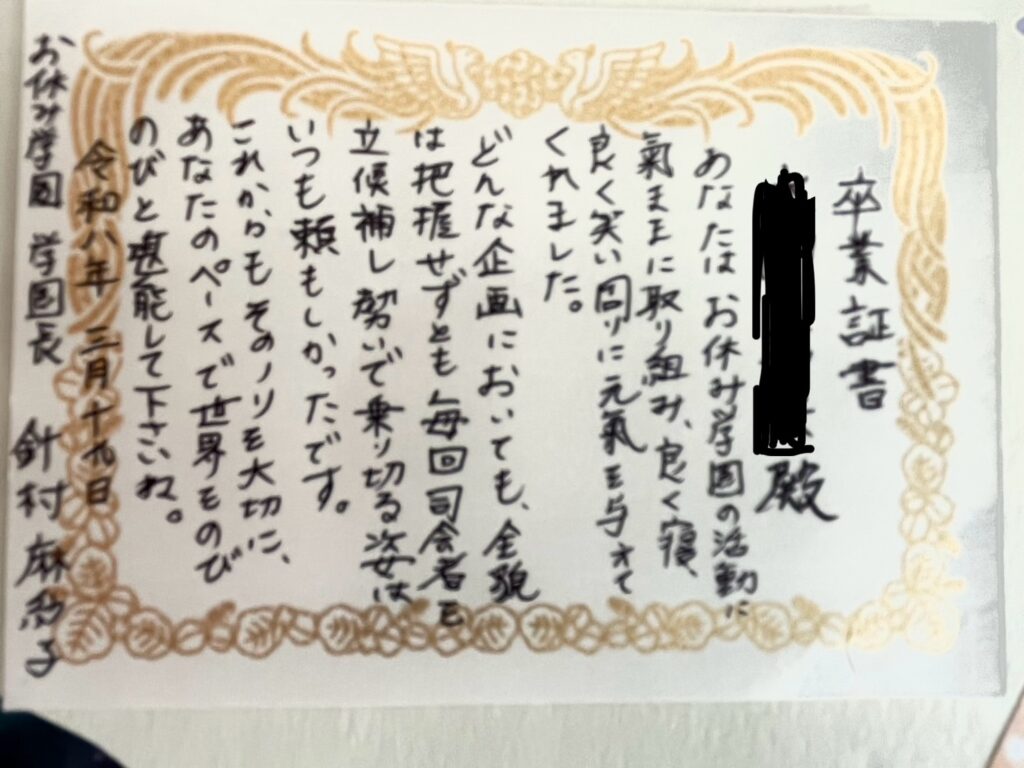 卒業証書
殿
あなたはお休み学園の活動に
氣ままに取り組み、良く寝、
良く笑い周りに元氣を与えて
くれました。
どんな企画においても、全貌
は把握せずとも毎回司会者を
立候補し勢いで乗り切る姿は
いつも頼もしかったです。
これからもそのノリを大切に、
あなたのペースで世界をのび
のびと堪能して下さいね。
令和八年 三月十九日
お休み学園 学園長 針村麻 子